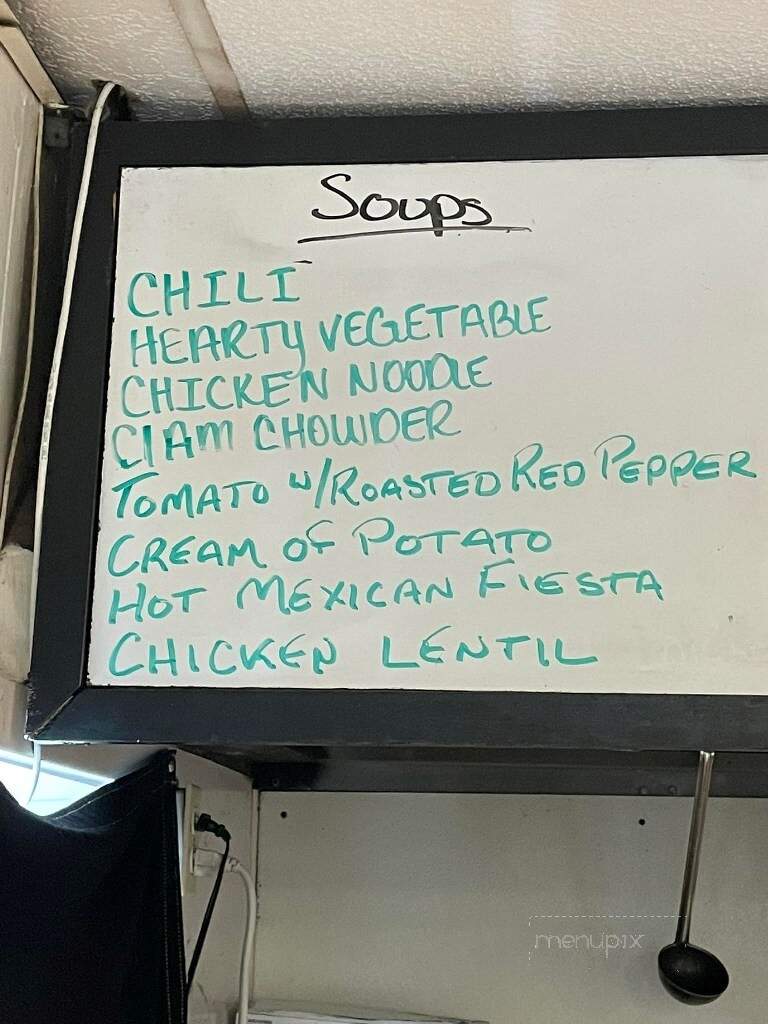 Soups
CHILI
HEARTY VEGETABLE
CHICKEN NOODLE
ClAM CHOWDER
TOMATO W/ROASTED RED PEPPER
CREAM OF POTATO
HOT MEXICAN FIESTA
CHICKEN LENTIL
menupix